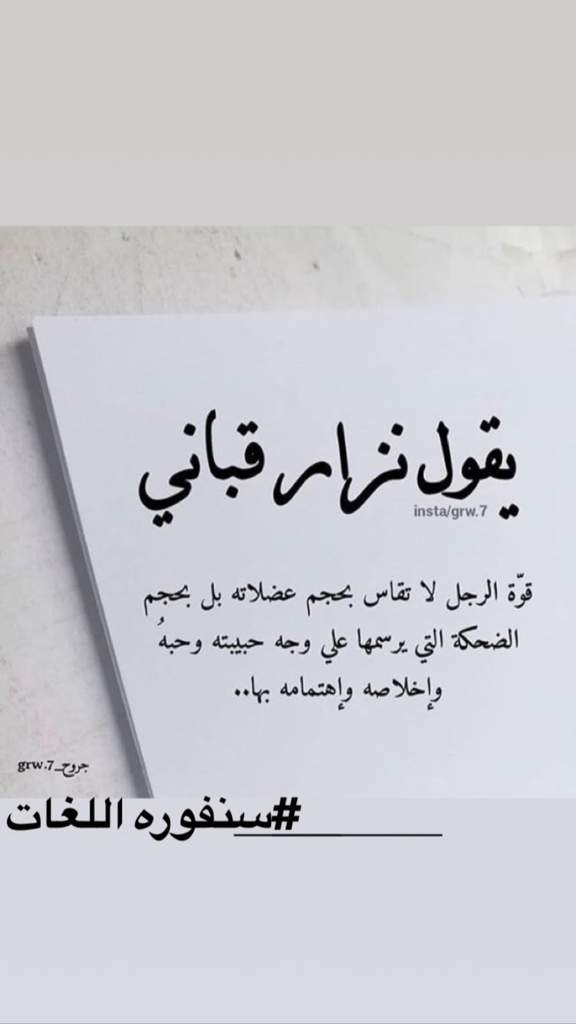 يقول نزار قباني
insta/grw.7
قوّة الرجل لا تقاس بحجم عضلاته بل بحجم
الضحكة التي يرسمها علي وجه حبيبته وحبهُ
وإخلاصه وإهتمامه بها..
جروح_grw.7
#سنفوره اللغات